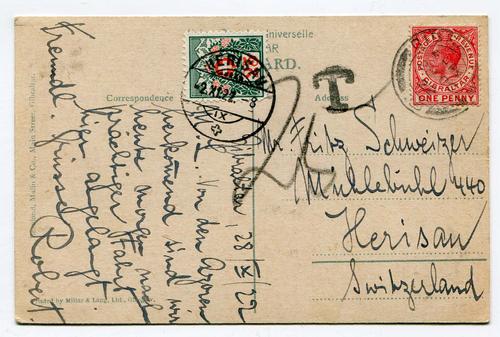 Universelle
AR
ARD.
Correspondence
Address
T
HERISAU
2.XI.22.-8
IX
POSTAGE & REVENUE
GIBRALTAR
ONE PENNY
Mr. Fritz Schweizer
Mühlebühl 440
Herisau
Switzerland
Gibraltar, 28/X/22
Von den Azoren
kommend sind wir
heute morgen nach
prächtiger Fahrt
hier angelangt
Freundl. Grüsse
Robert
Main Street, Gibraltar.
Printed by Millar & Lang, Ltd., Glasgow.